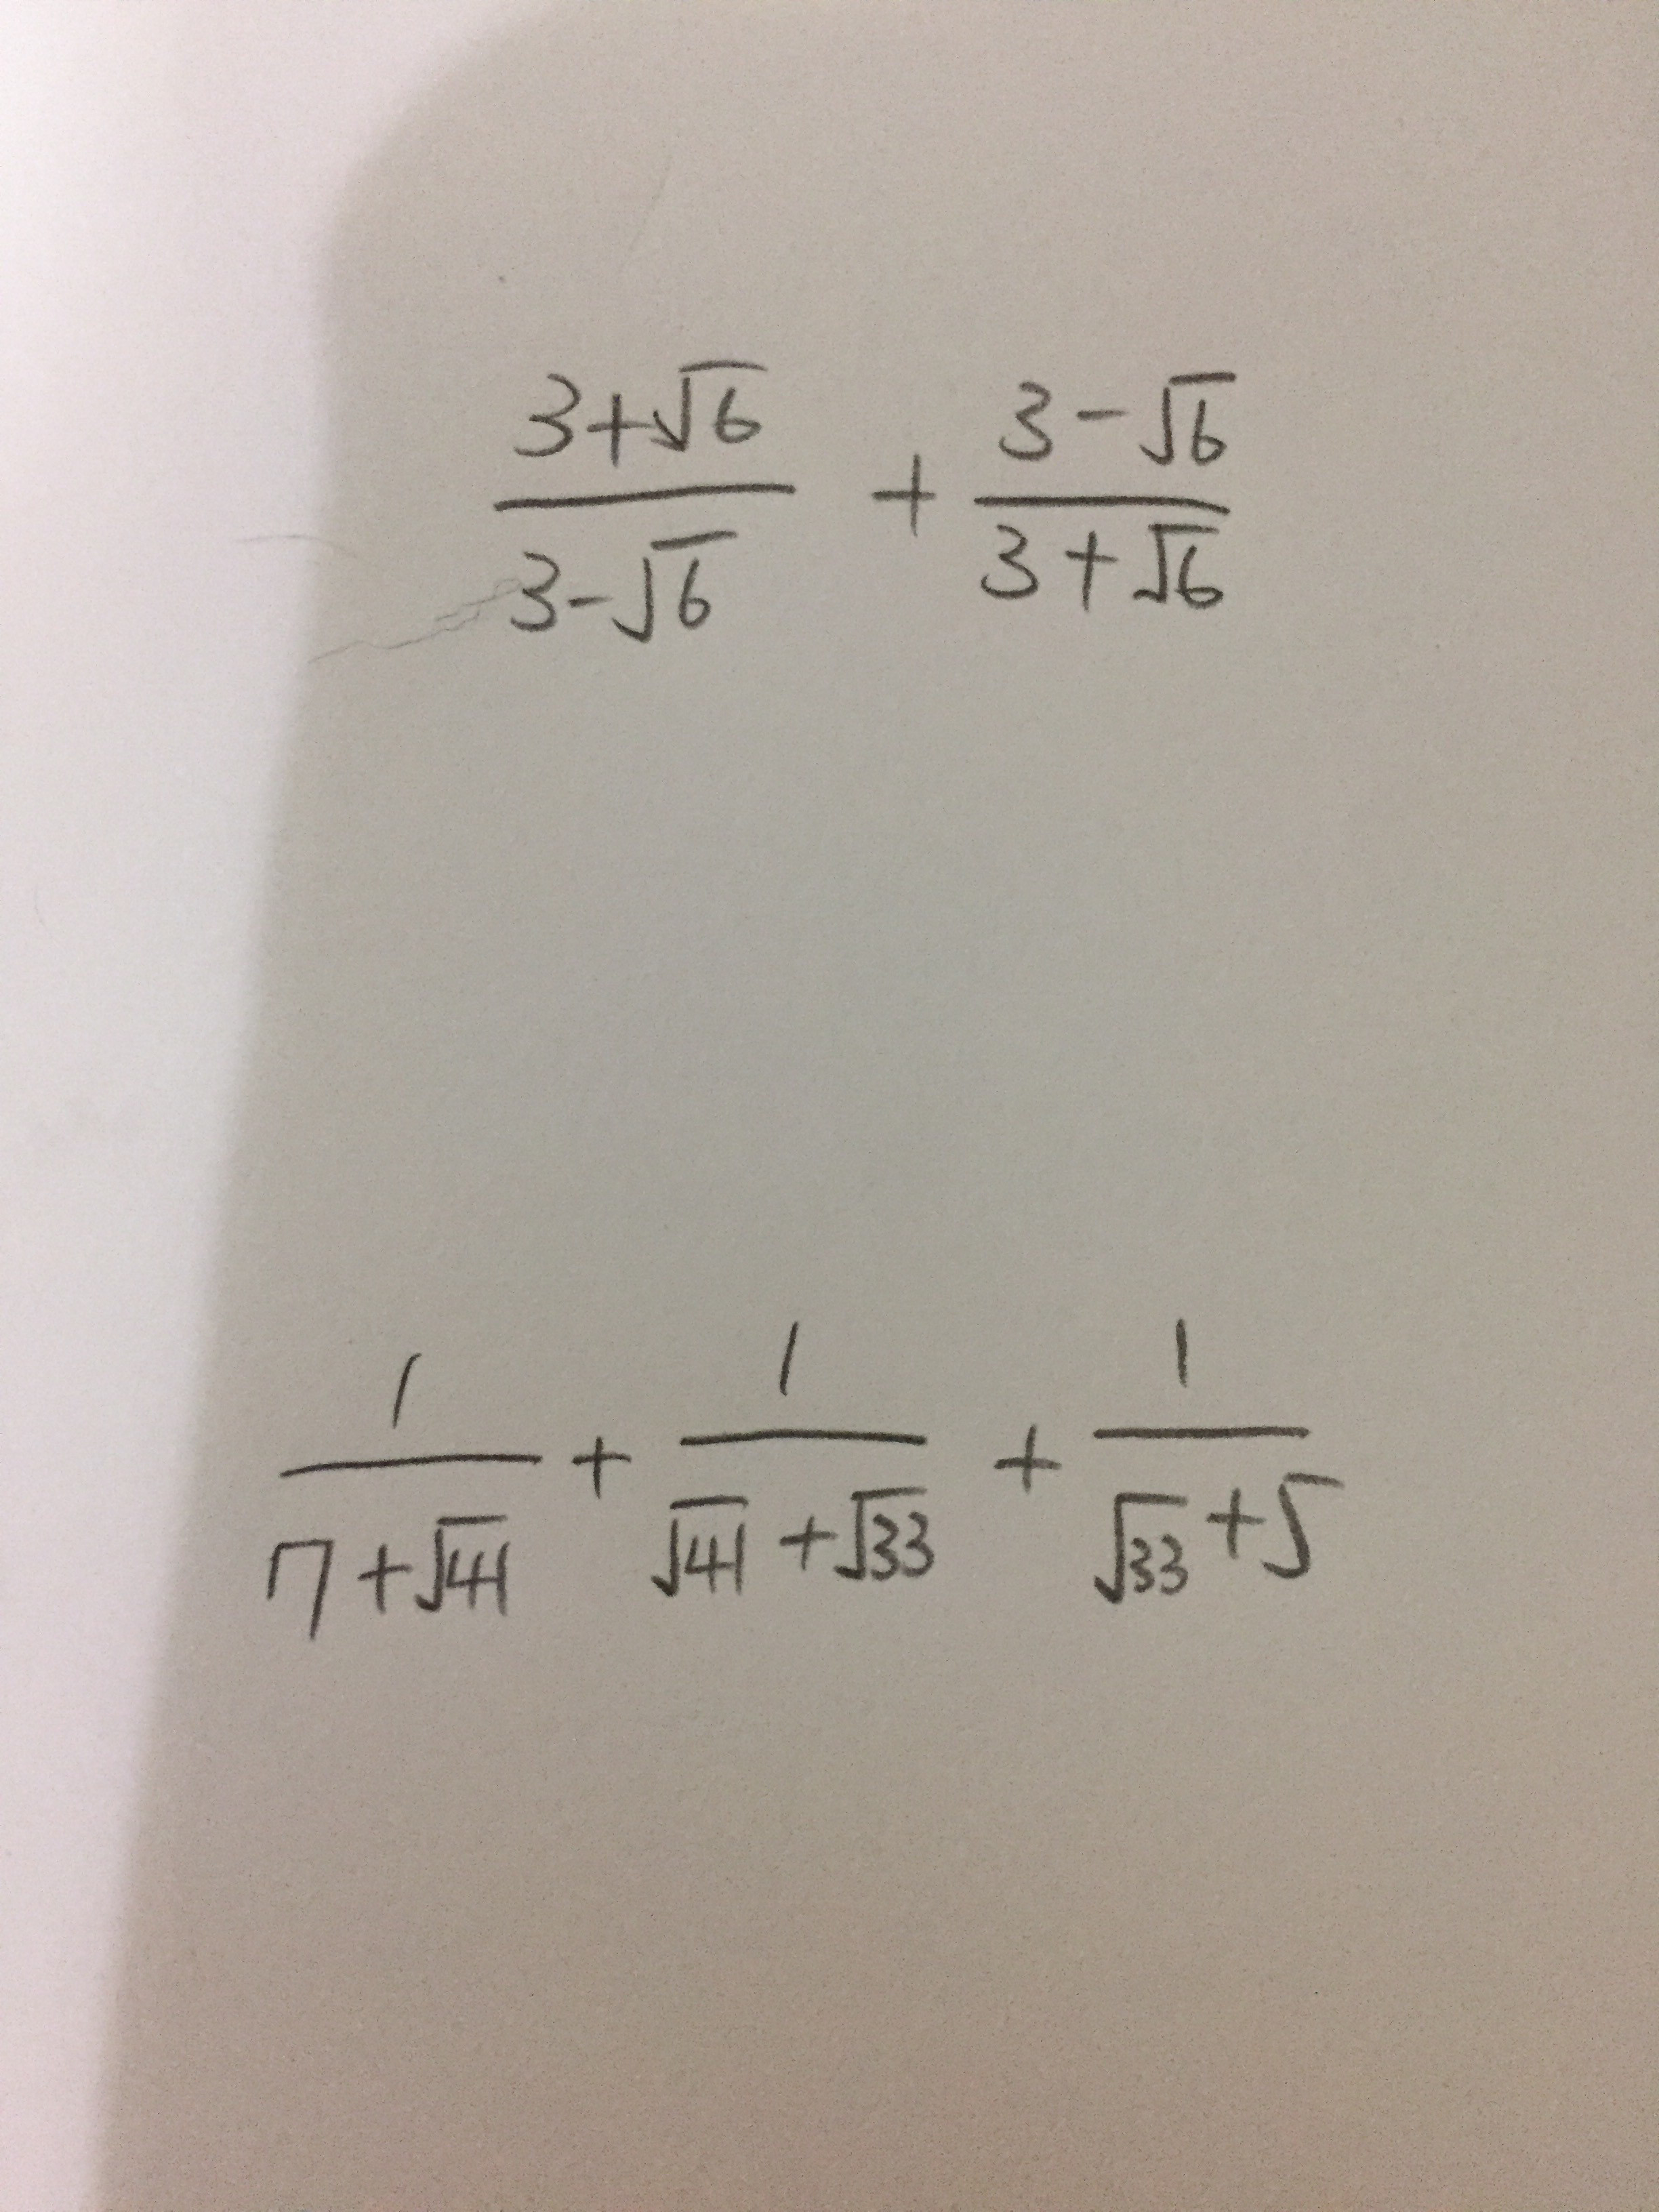 (3+√6)/(3-√6) + (3-√6)/(3+√6)
1/(7+√41) + 1/(√41+√33) + 1/(√33+5)